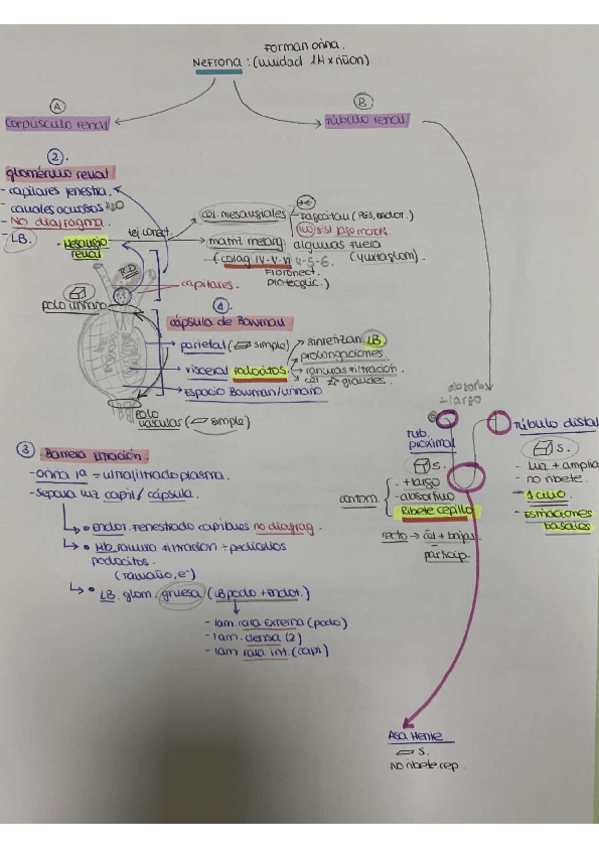 Forman orina.
Nefrona: (unidad 1H x riñon)
A
B
corpúsculo renal
túbulo renal
2.
glomérulo renal
- capilares fenestra.
- canales acuosos H2O
- No diafragma.
- LB.
- Mesangio renal
tej conect
cel. mesangiales
fagocitan (
(no) sist fagomonoc
matriz mesang
algunas fuera
(yuxtaglom).
(colag IV-V-VI 4-5-6.
Fibronect.
Proteoglic.)
capilares.
polo urinario
4.
cápsula de Bowman
parietal ( simple)
sintetizan LB
prolongaciones.
visceral podocitos
ranuras filtración.
cel grandes.
Espacio Bowman/urinario
Polo
vascular ( simple)
absorbe
+ largo
Tub.
proximal
s.
contorn
- + largo
- absortivo
Ribete cepillo
recto → cel + bajas
particip.
Túbulo distal
s.
- luz + amplia
- no ribete.
- 1 cilio.
- Estriaciones
basales
3 Barrera filtración.
- orina 1ª = ultrafiltrado plasma.
- separa luz capil / cápsula.
• endot. fenestrado capilares no diafrag.
• Mb. ranura filtracion ÷ pedicelos
podocitos.
(tamaño, e-)
• LB. glom. gruesa (LB podo + endot.)
- lam rara externa (podo)
- lam. densa (2)
- lam rara int. (capi)
Asa Henle
s.
no ribete cep.